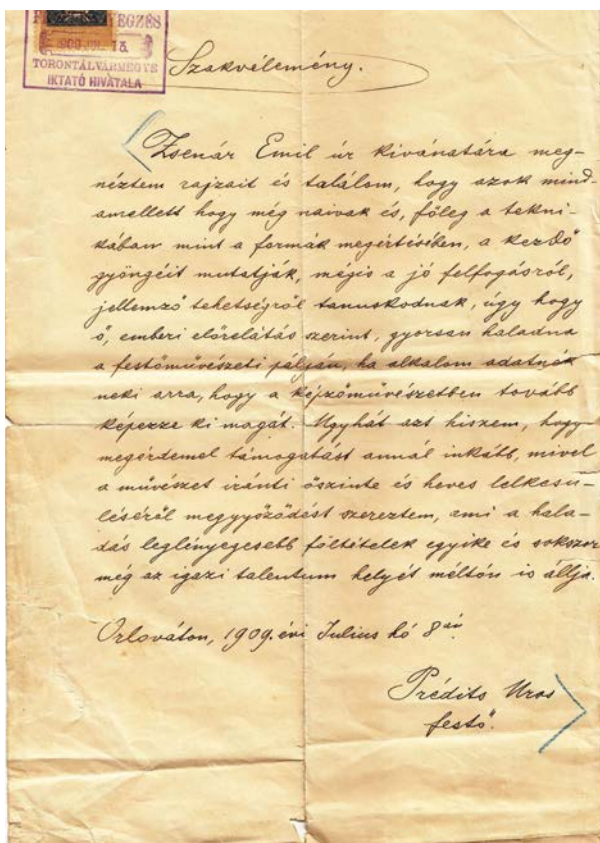 EGZÉS
1909 JUL. 15.
TORONTÁLVÁRMEGYE
IKTATÓ HIVATALA
Szakvélemény.
Zsenár Emil úr kivánatára meg-
néztem rajzait és találom, hogy azok mind-
amellett hogy még naivak és, főleg a tekni-
kában mint a formák megértésében, a kezdő
gyöngéit mutatják, mégis a jó felfogásról,
jellemző tehetségről tanuskodnak, úgy hogy
ő, emberi előrelátás szerint, gyorsan haladna
a festőművészeti pályán, ha alkalom adatnék
neki arra, hogy a képzőművészetben tovább
képezze ki magát. Ugyhát azt hiszem, hogy
megérdemel támogatást annál inkább, mivel
a művészet iránti őszinte és heves lelkesü-
léséről meggyőződést szereztem, ami a hala-
dás leglényegesebb föltételek egyike és sokszor
még az igazi talentum helyét méltón is állja.
Orlováton, 1909. évi Julius hó 8án
Prédits Uros
festő.